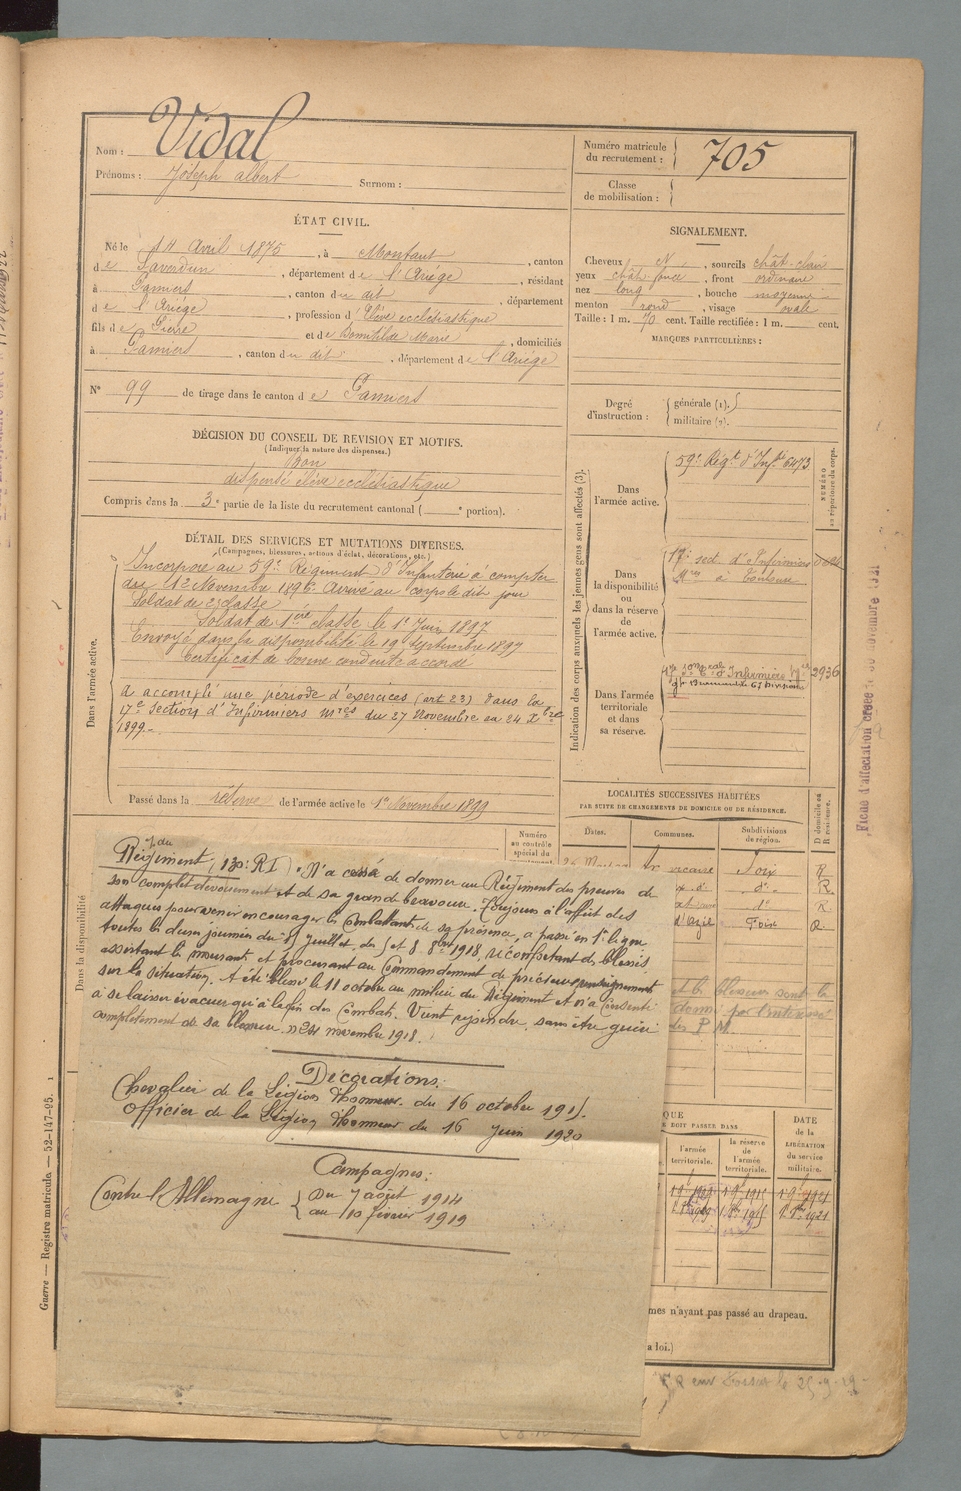 Nom : Vidal
Prénoms : Joseph Albert Surnom :
Numéro matricule du recrutement : 705
Classe de mobilisation :
ÉTAT CIVIL.
Né le 14 Avril 1875, à Montaut, canton
de Saverdun, département de l'Ariège, résidant
à Pamiers, canton du dit, département
de l'Ariège, profession d'Elève ecclésiastique
fils de Pierre et de Domitilde Marie, domiciliés
à Pamiers, canton du dit, département de l'Ariège
N° 99 de tirage dans le canton de Pamiers
SIGNALEMENT.
Cheveux N, sourcils chât-clair
yeux chât foncé, front ordinaire
nez long, bouche moyenne
menton rond, visage ovale
Taille : 1 m. 70 cent. Taille rectifiée : 1 m. cent.
MARQUES PARTICULIÈRES :
Degré d'instruction : générale (1).
militaire (2).
DÉCISION DU CONSEIL DE REVISION ET MOTIFS.
(Indiquer la nature des dispenses.)
Bon
dispensé élève ecclésiastique
Compris dans la 3e partie de la liste du recrutement cantonal ( e portion).
DÉTAIL DES SERVICES ET MUTATIONS DIVERSES.
(Campagnes, blessures, actions d'éclat, décorations, etc.)
Dans l'armée active.
Incorporé au 59e Régiment d'Infanterie à compter
du 12 Novembre 1896. Arrivé au corps le dit jour
Soldat de 2e classe
Soldat de 1ère classe le 1er Juin 1897
Envoyé dans la disponibilité le 19 Septembre 1897
Certificat de bonne conduite accordé
A accompli une période d'exercices (art 23) dans la
17e Section d'Infirmiers Mres du 27 Novembre au 24 Xbre
1899.-
Passé dans la réserve de l'armée active le 1er Novembre 1899
Indication des corps auxquels les jeunes gens sont affectés (3).
NUMÉRO au répertoire du corps.
Dans l'armée active.
59e Régt d'Infie 6473
Dans la disponibilité ou dans la réserve de l'armée active.
17e sect. d'Infirmiers
Mres à Toulouse
Dans l'armée territoriale et dans sa réserve.
d'Infirmiers 2936
67 Division
LOCALITÉS SUCCESSIVES HABITÉES
PAR SUITE DE CHANGEMENTS DE DOMICILE OU DE RÉSIDENCE.
Dates. Communes. Subdivisions de région. D domicile ou R résidence.
vicaire Foix R
do R.
do R
d'Azil Foix R.
Numéro au contrôle spécial du
Dans la disponibilité
Régiment (130e RI) "N'a cessé de donner au Régiment des preuves de
son complet dévouement et de sa grande bravoure. Toujours à l'affût des
attaques pour venir encourager les Combattants de sa présence, a passé en 1e ligne
toutes les dures journées du 15 juillet, du 5 et 8 8bre 1918, réconfortant des blessés,
assistant les mourants et procurant au Commandement de précieux renseignements
sur la situation. A été blessé le 11 octobre au milieu du Régiment et n'a consenti
à se laisser évacuer qu'à la fin des Combats. Vient rejoindre, sans être guéri
complètement de sa blessure. 24 novembre 1918.
Décorations.
Chevalier de la Légion d'honneur du 16 octobre 1915.
Officier de la Légion d'honneur du 16 Juin 1920
Campagnes :
Contre l'Allemagne Du 7 août 1914
au 10 février 1919
QUE
DOIT PASSER DANS
l'armée territoriale. la réserve de l'armée territoriale.
DATE de la LIBÉRATION du service militaire.
mes n'ayant pas passé au drapeau.
a loi.)
Guerre — Registre matricule — 52-147-95. 1
Fiche d'affectation créée le novembre 1921